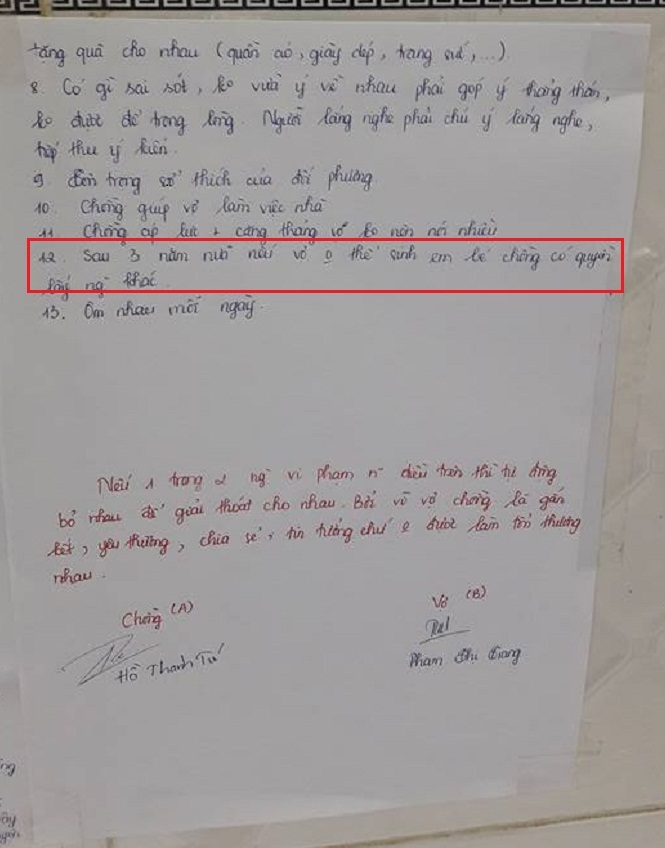 tặng quà cho nhau (quần áo, giày dép, trang sức,...).
8. Có gì sai sót, ko vừa ý về nhau phải góp ý thẳng thắn,
ko được để trong lòng. Người lắng nghe phải chú ý lắng nghe,
tiếp thu ý kiến.
9. Tôn trọng sở thích của đối phương
10. Chồng giúp vợ làm việc nhà
11. Chồng áp lực + căng thẳng vợ ko nên nói nhiều
12. Sau 3 năm nữa nếu vợ o thể sinh em bé chồng có quyền
lấy ng khác.
13. Ôm nhau mỗi ngày.
Nếu 1 trong 2 ng vi phạm n~ điều trên thì tự động
bỏ nhau để giải thoát cho nhau. Bởi vì vợ chồng là gắn
kết, yêu thương, chia sẻ, tin tưởng chứ o được làm tổn thương
nhau.
Chồng (A)
Vợ (B)
Hồ Thanh Tú
Phạm Thị Trang